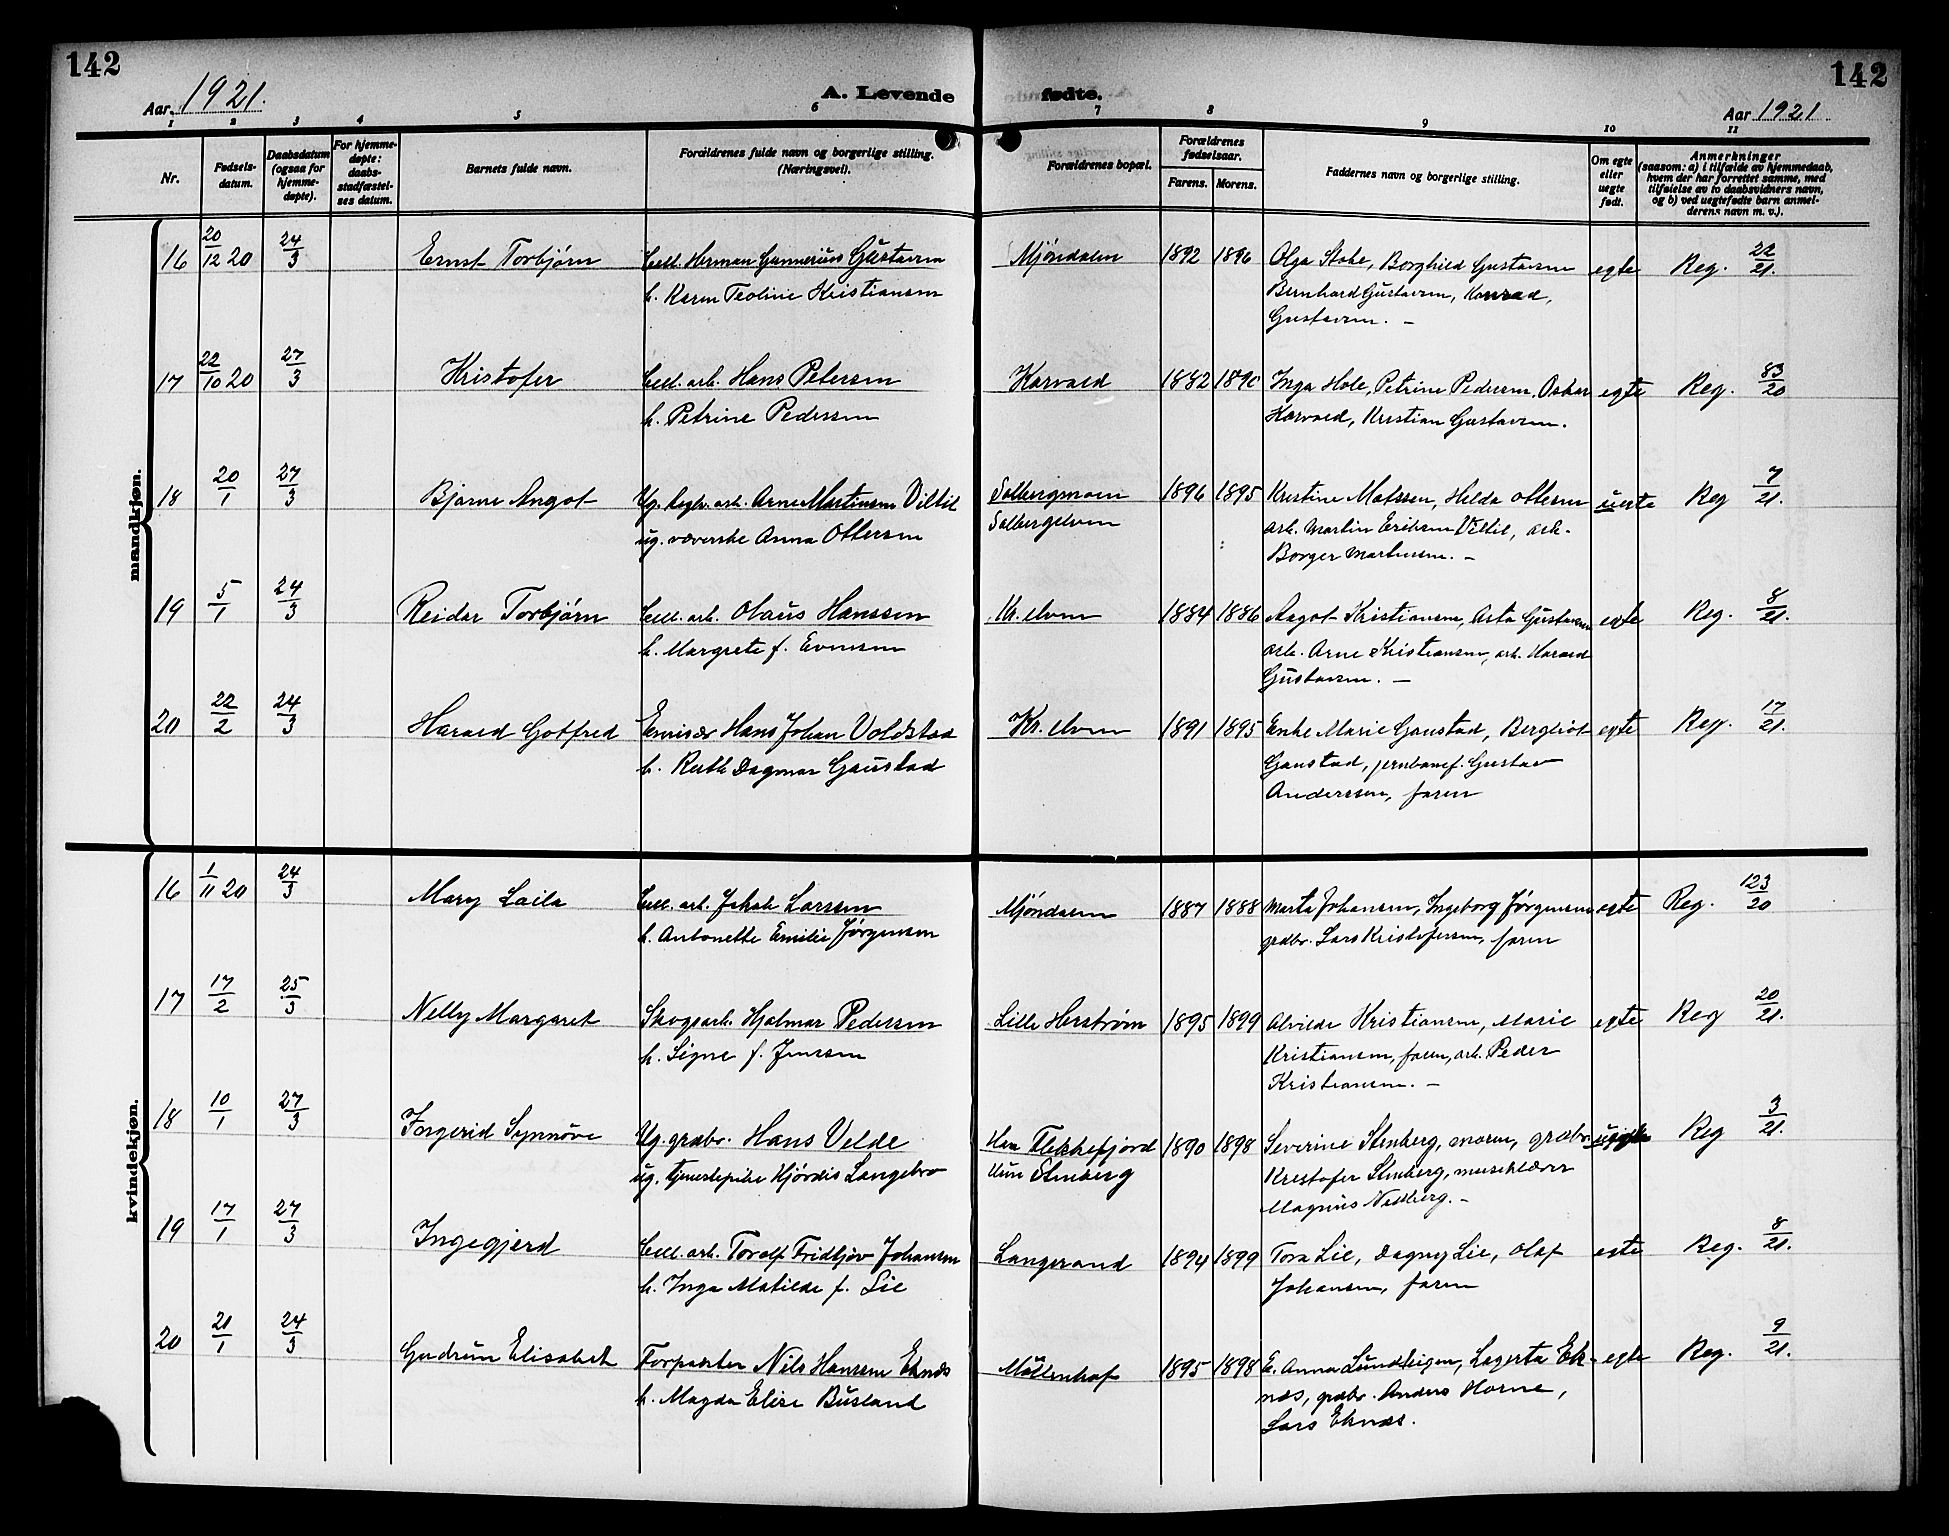 142
142
Aar 1921.
A. Levende fødte.
Aar 1921
1 2 3 4 5 6 7 8 9 10 11
Nr.
Fødsels-
datum.
Daabsdatum
(ogsaa for
hjemme-
døpte).
For hjemme-
døpte:
daabs-
stadfæstel-
ses datum.
Barnets fulde navn.
Forældrenes fulde navn og borgerlige stilling.
(Næringsvei).
Forældrenes bopæl.
Forældrenes
fødselsaar.
Farens. Morens.
Faddernes navn og borgerlige stilling.
Om egte
eller
uegte
født.
Anmerkninger
(saasom: a) i tilfælde av hjemmedaab,
hvem der har forrettet samme, med
tilføielse av to daabsvidners navn,
og b) ved uegtefødte barn anmel-
derens navn m. v.).
mandkjøn.
16 20/12 20 24/3 Ernst Torbjørn Cell. Herman Gunnerius Gustavsen Mjøndalen 1892 1896 Olga Stabe, Borghild Gustavsen egte Reg. 22/21.
h. Karen Teoline Kristiansen Bernhard Gustavsen, Konrad,
Gustavsen. -
17 22/10 20 27/3 Kristofer Cell. arb. Hans Petersen Horvald 1882 1890 Inga Hole, Petrine Pedersen, Oskar egte Reg. 83/20
h. Petrine Pedersen Horvald, Kristian Gustavsen.
18 20/1 27/3 Bjarne Angot Ug. arb. Arne Martinsen Viltil Solbergmoen 1896 1895 Kristine Matssen, Helda Ottersen uegte Reg 7/21.
ug. væverske Anna Ottersen Solbergelven arb. Martin Eriksen Viltil, arb.
Borger Martinsen. -
19 5/1 24/3 Reidar Torbjørn Cell. arb. Olaus Hanssen Kr. elven 1884 1886 Aagot Kristiansen, Asta Gustavsen egte Reg. 8/21.
h. Margrete f. Evensen arb. Arne Kristiansen, arb. Harald
Gustavsen. -
20 22/2 24/3 Harald Gotfred Emisær Hans Johan Voldstad Kr. elven 1891 1895 Enke Marie Gaustad, Bergliot egte Reg. 17/21.
h. Ruth Dagmar Gaustad Gaustad, jernbanef. Gustav
Anderssen, faren
kvindekjøn.
16 1/11 20 24/3 Mary Laila Cell. arb. Jakob Larssen Mjøndalen 1887 1888 Marta Johansen, Ingeborg Jørgensen egte Reg. 123/20
h. Antonette Emilie Jørgensen grdbr. Lars Kristofersen, faren
17 17/2 25/3 Nelly Margaret Skogsarb. Hjalmar Pedersen Lille Herstrøm 1895 1899 Alvilde Kristiansen, Marie egte Reg 20/21.
h. Signe f. Jenssen Kristiansen, faren, arb. Peder
Kristiansen. -
18 10/1 27/3 Ingerid Synnøve Ug. grdbr. Hans Velde Flekkefjord 1890 1898 Severine Stenberg, moren, grdbr. uegte Reg 3/21.
ug. tjenestepike Hjørdis Langebro Stenberg Kristofer Stenberg, musiklærer
Magnus Nedberg. -
19 17/1 27/3 Ingegjerd Cell. arb. Torolf Fridtjov Johansen Langerand 1894 1899 Tora Lie, Dagny Lie, Olaf egte Reg. 8/21.
h. Inga Matilde f. Lie Johansen, faren
20 21/1 24/3 Gudrun Elisabet Forpakter Nils Hanssen Eknæs Møllenhof 1895 1898 E. Anna Lundteigen, Lagerta Ek- egte Reg. 9/21.
h. Magda Elise Busland næs, grdbr. Anders Horne,
Lars Eknæs.